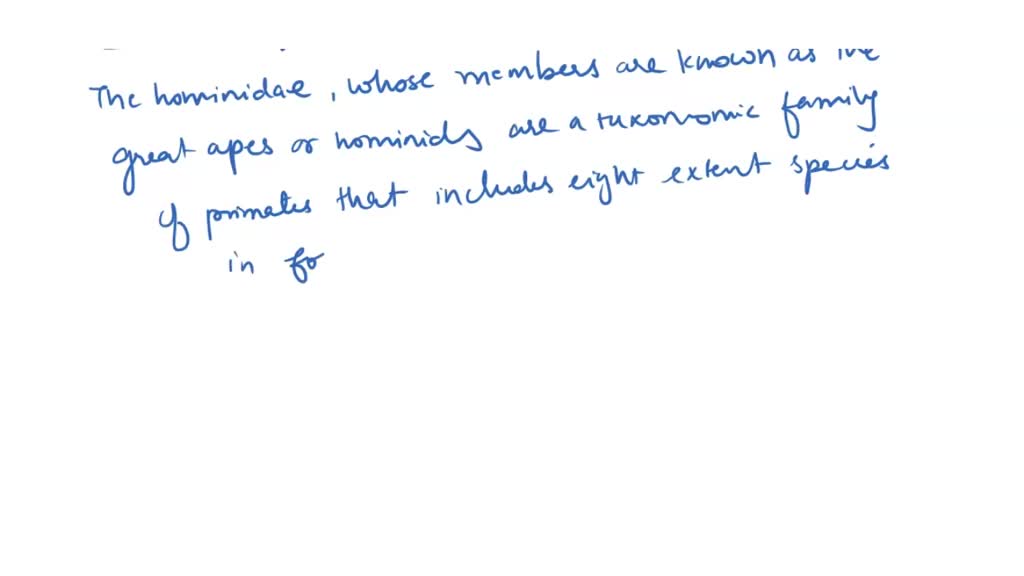 The hominidae, whose members are known as the
great apes or hominids are a taxonomic family
of primates that includes eight extent species
in fo